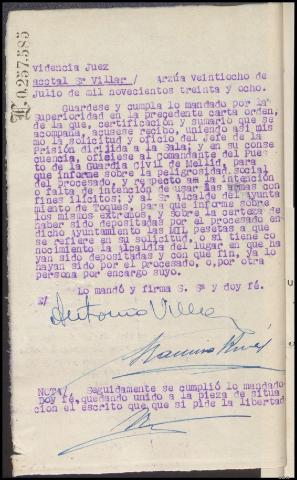 E.0.257.585
videncia Juez
acctal Sr Villar/ Arzúa veintiocho de
Julio de mil novecientos treinta y ocho.
Guardese y cumpla lo mandado por la
Superioridad en la precedente carta orden,
de la que, certificación y sumario que se
acompaña, acusese recibo, uniendo asi mis
mo la solicitud y oficio del Jefe de la
Prisión dirijida a la Sala; y en su conse
cuencia, ofíciese al comandante del Pues
to de la Guardia Civil de Mellid, para
que informe sobre la peligrosidad social
del procesado, y respecto am la intención
o falta de intención de usar las armas con
fines ilícitos; y al Sr Alcalde del Ayunta
miento de Toques, para que informe sobre
los mismos extremos, y sobre la certeza de
haber sido depositadas por el procesado en
dicho Ayuntamiento las MIL pesetas a que
se refiere en su solicitud, o si tiene co
nocimiento la Alcaldía del lugar en que ha
yan sido depositadas y con que fin, ya lo
hayan sido por el procesado, o por otra
persona por encargo suyo.
Lo mandó y firma S. Sª y doy fé.
E/
Antonio Villar
NOTA/ Seguidamente se cumplió lo mandado
doy fé, quedando unido a la pieza de situa
cion el escrito que que si pide la libertad